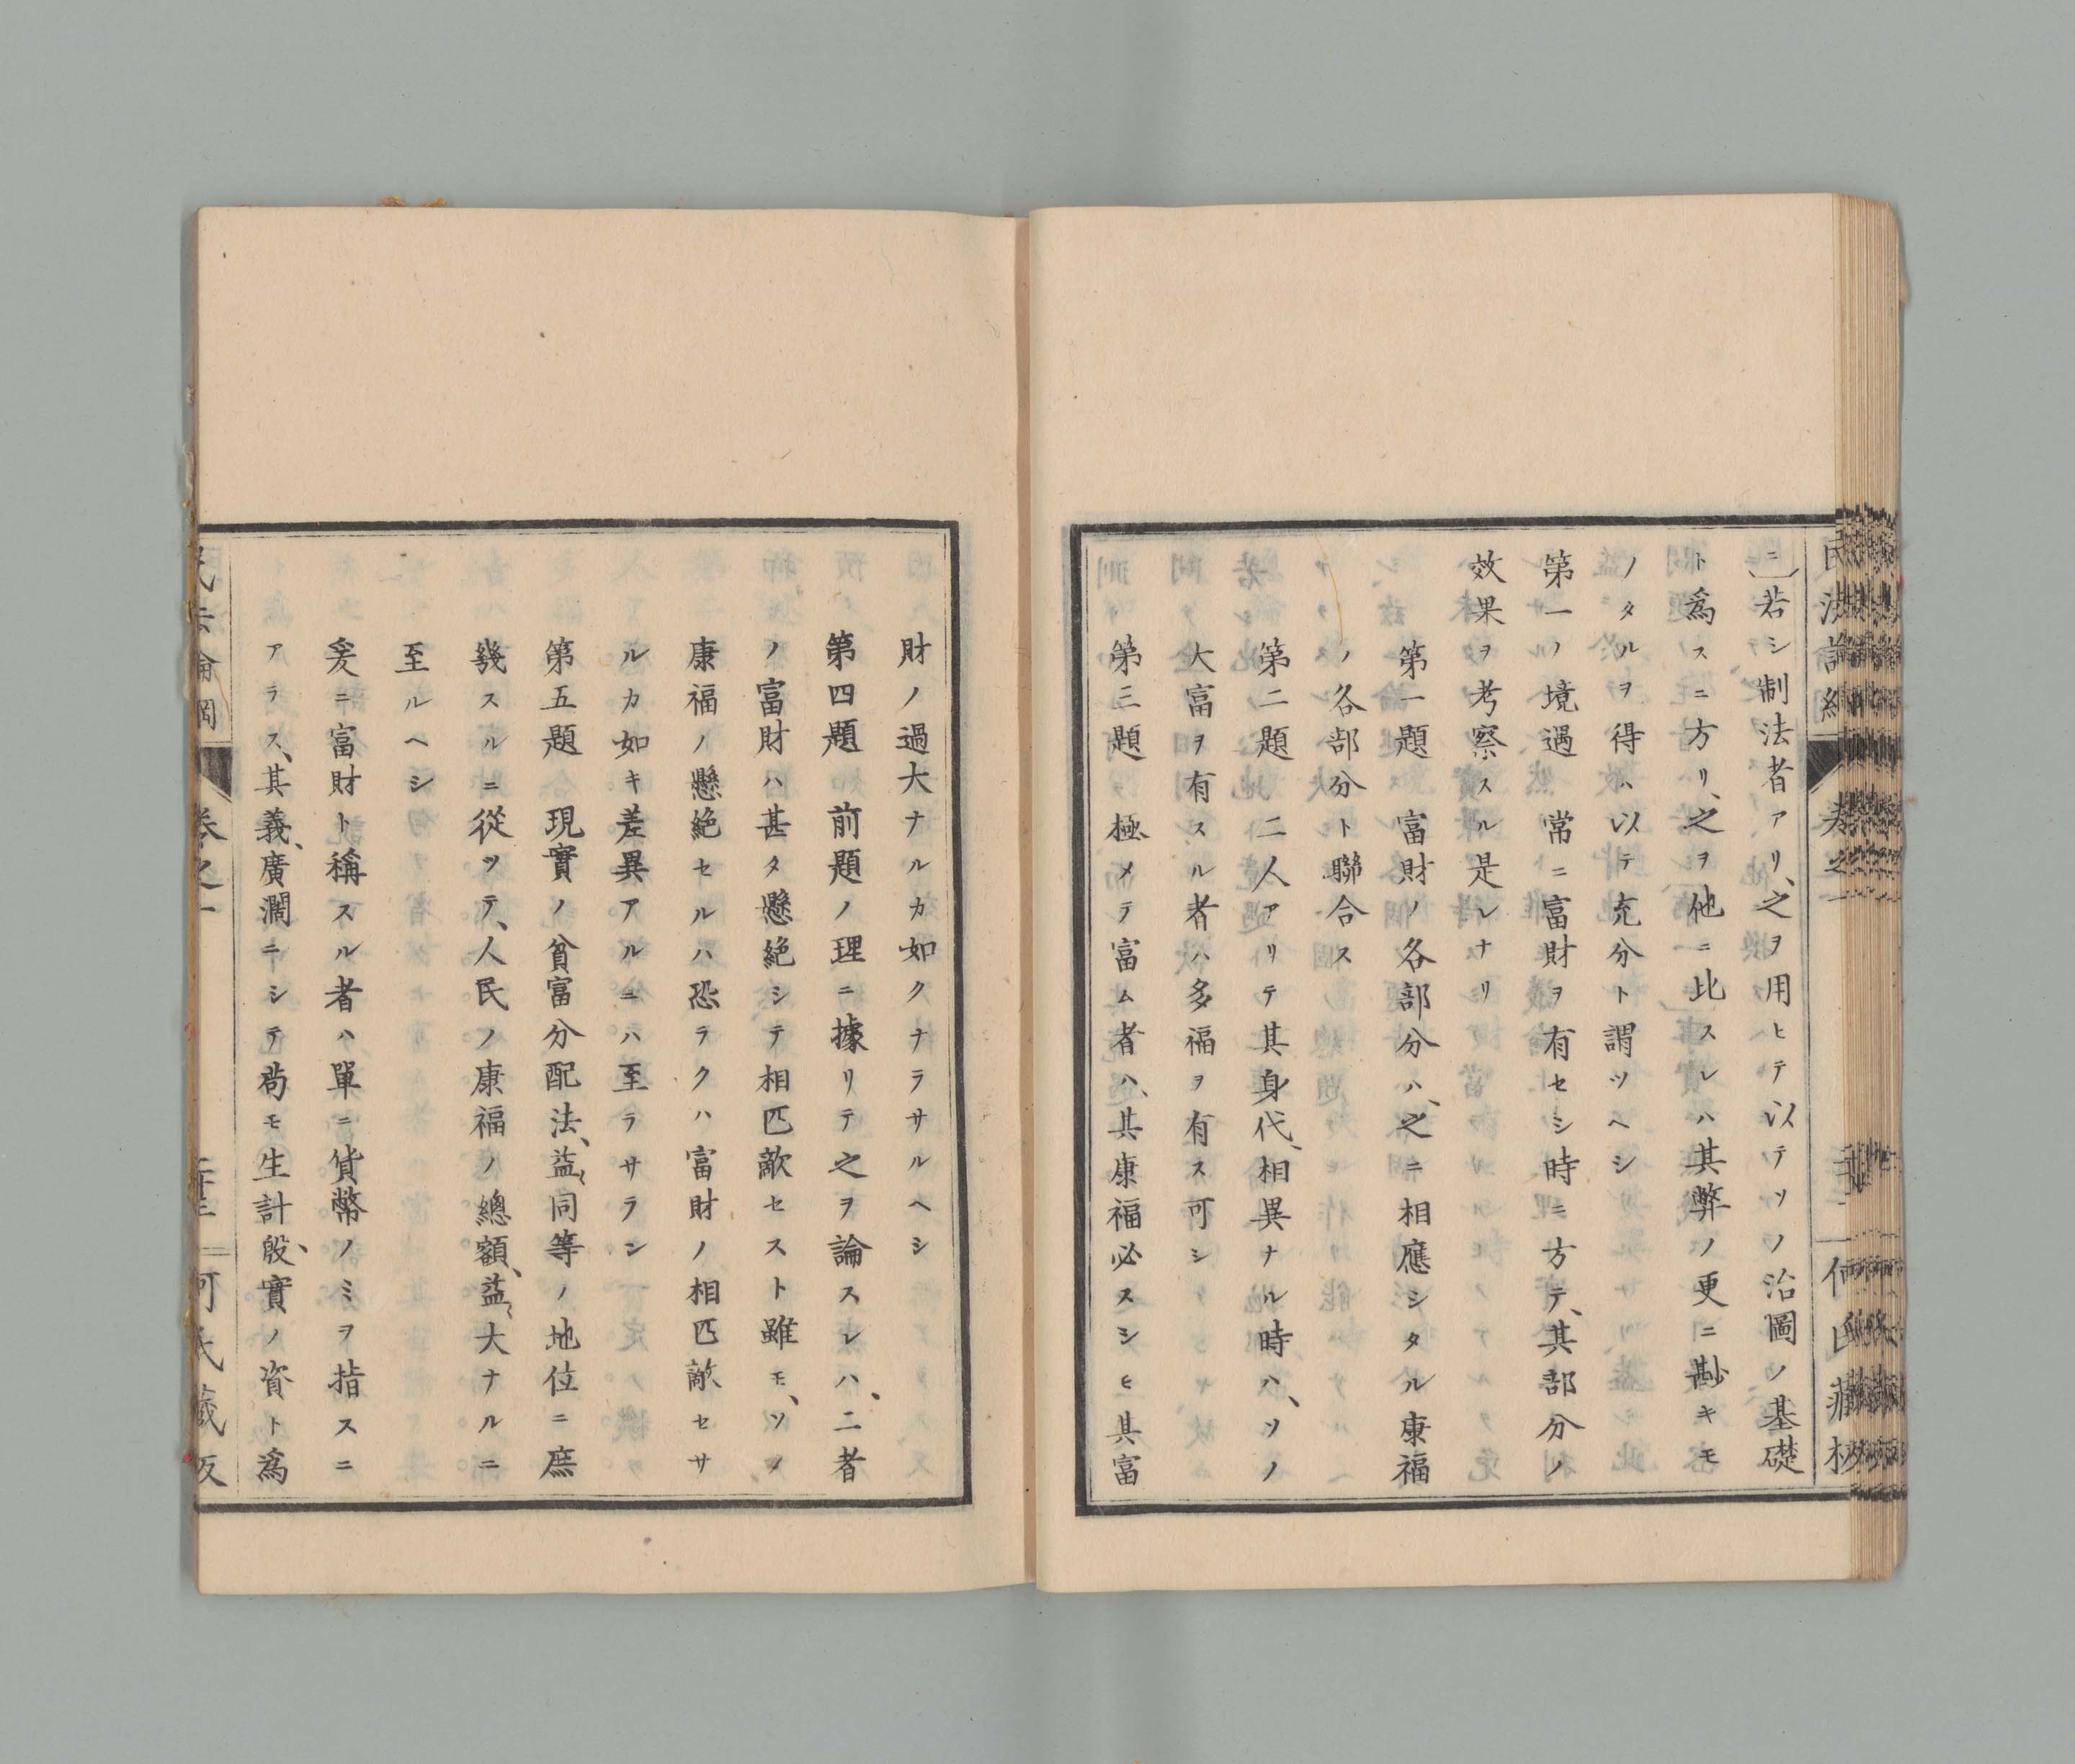 ニ〕若シ制法者アリ、之ヲ用ヒテ以テソノ治圖ノ基礎
ト爲スニ方リ、之ヲ他ニ比スレハ其弊ノ更ニ尠キモ
ノタルヲ得ハ以テ充分ト謂ツヘシ
第一ノ境遇 常ニ富財ヲ有セシ時ニ方テ、其部分ノ
效果ヲ考察スル是レナリ
第一題 富財ノ各部分ハ、之ニ相應シタル康福
ノ各部分ト聯合ス
第二題 二人アリテ其身代、相異ナル時ハ、ソノ
大富ヲ有スル者ハ多福ヲ有ス可シ
第三題 極メテ富ム者ハ、其康福必スシモ其富
財ノ過大ナルカ如クナラサルヘシ
第四題 前題ノ理ニ據リテ之ヲ論スレハ、二者
ノ富財ハ甚タ懸絶シテ相匹敵セスト雖モ、ソノ
康福ノ懸絶セルハ恐ラクハ富財ノ相匹敵セサ
ルカ如キ差異アルニハ至ラサラン
第五題 現實ノ貧富分配法、益〻同等ノ地位ニ庶
幾スルニ從ツテ、人民ノ康福ノ總額、益〻大ナルニ
至ルヘシ
爰ニ富財ト稱スル者ハ單ニ貨幣ノミヲ指スニ
アラス、其義、廣濶ニシテ苟モ生計、殷實ノ資ト爲
卷之一
何氏藏版